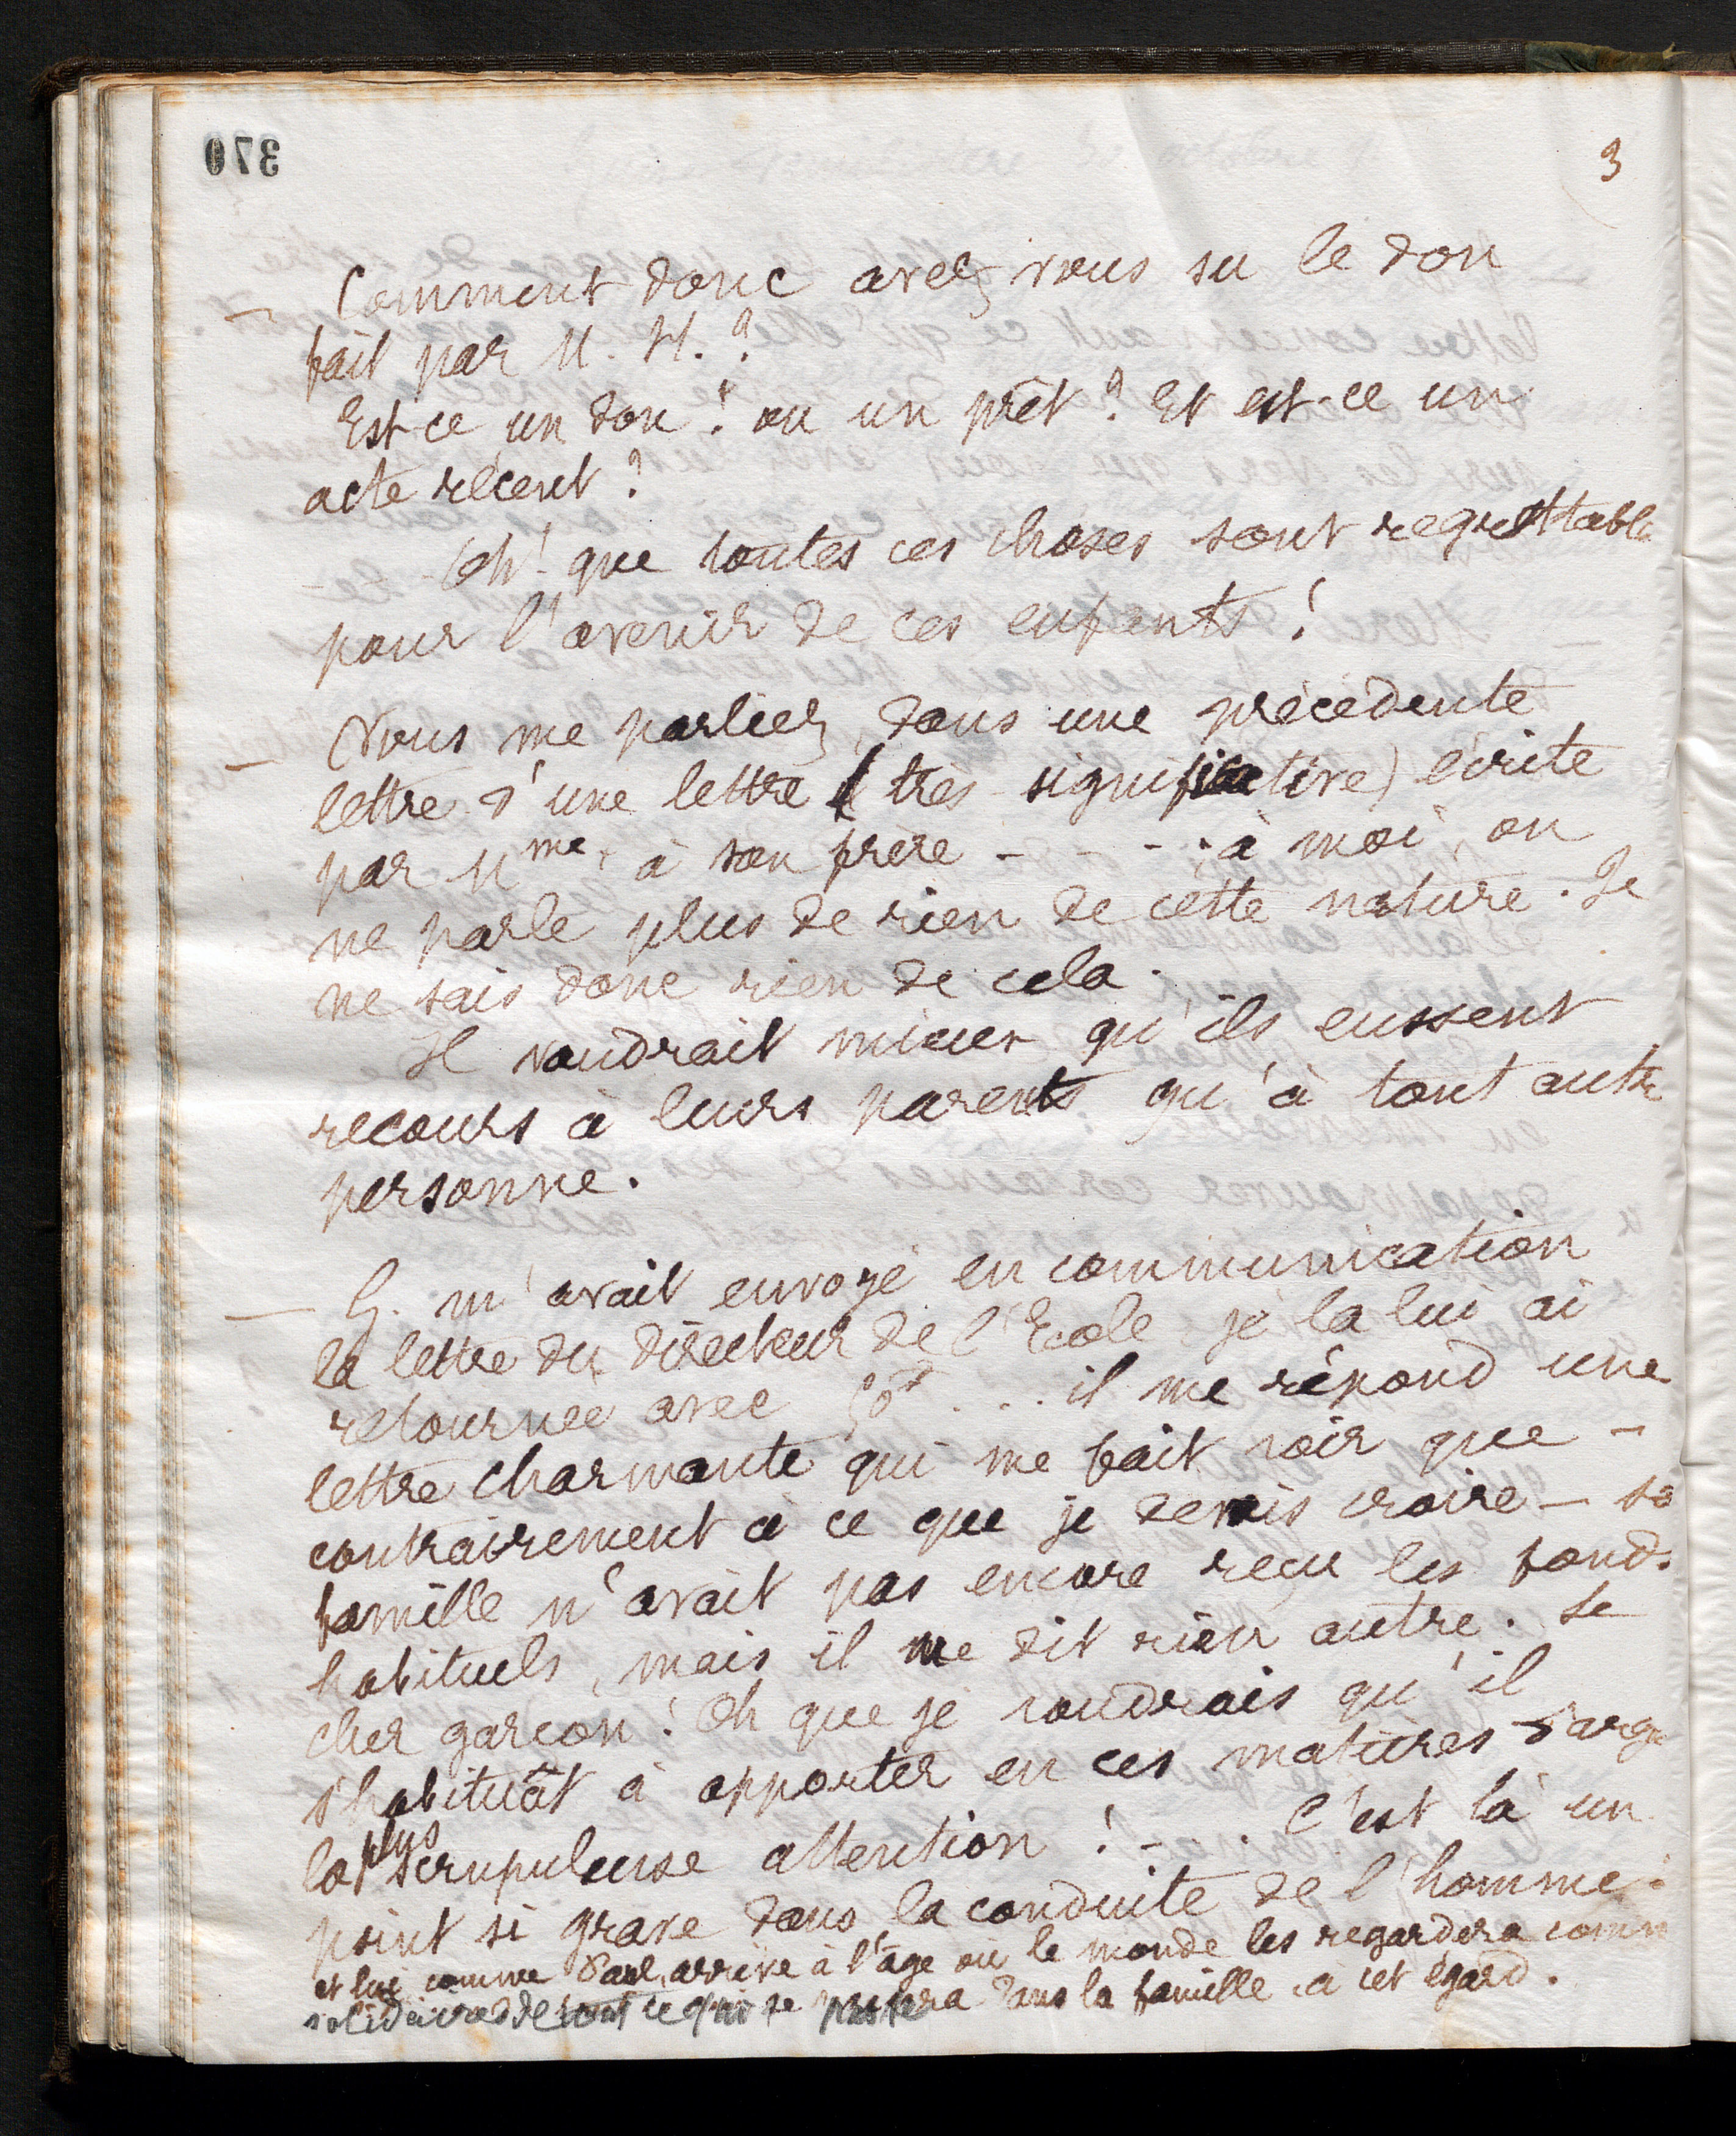 370
3
— Comment donc avez vous su le don
fait par M. H. ?
Est-ce un don ? ou un prêt ? Et est-ce un
acte récent ?
- - - Oh ! que toutes ces choses sont regrettable
pour l'avenir de ces enfants !
— Vous me parliez, dans une précédente
lettre d'une lettre (très significative) écrite
par Mme. à son frère - - - . à moi, on
ne parle plus de rien de cette nature. Je
ne sais donc rien de cela.
Il vaudrait mieux qu'ils eussent
recours à leurs parents qu'à tout autre
personne.
— G. m'avait envoyé en communication
la lettre du directeur de l'Ecole je la lui ai
retournée avec 50f ... il me répond une
lettre charmante qui me fait voir que —
contrairement à ce que je devais croire — sa
famille n'avait pas encore reçu les fonds
habituels, mais il ne dit rien autre. Le
cher garçon ! Oh que je voudrais qu'il
s'habituât à apporter en ces matières d'arge
la plus scrupuleuse attention ! - . C'est là un
point si grave dans la conduite de l'homme :
et lui comme Paul, arrive à l'âge où le monde les regardera comm
solidaires de tout ce qui se passera dans la famille à cet égard.